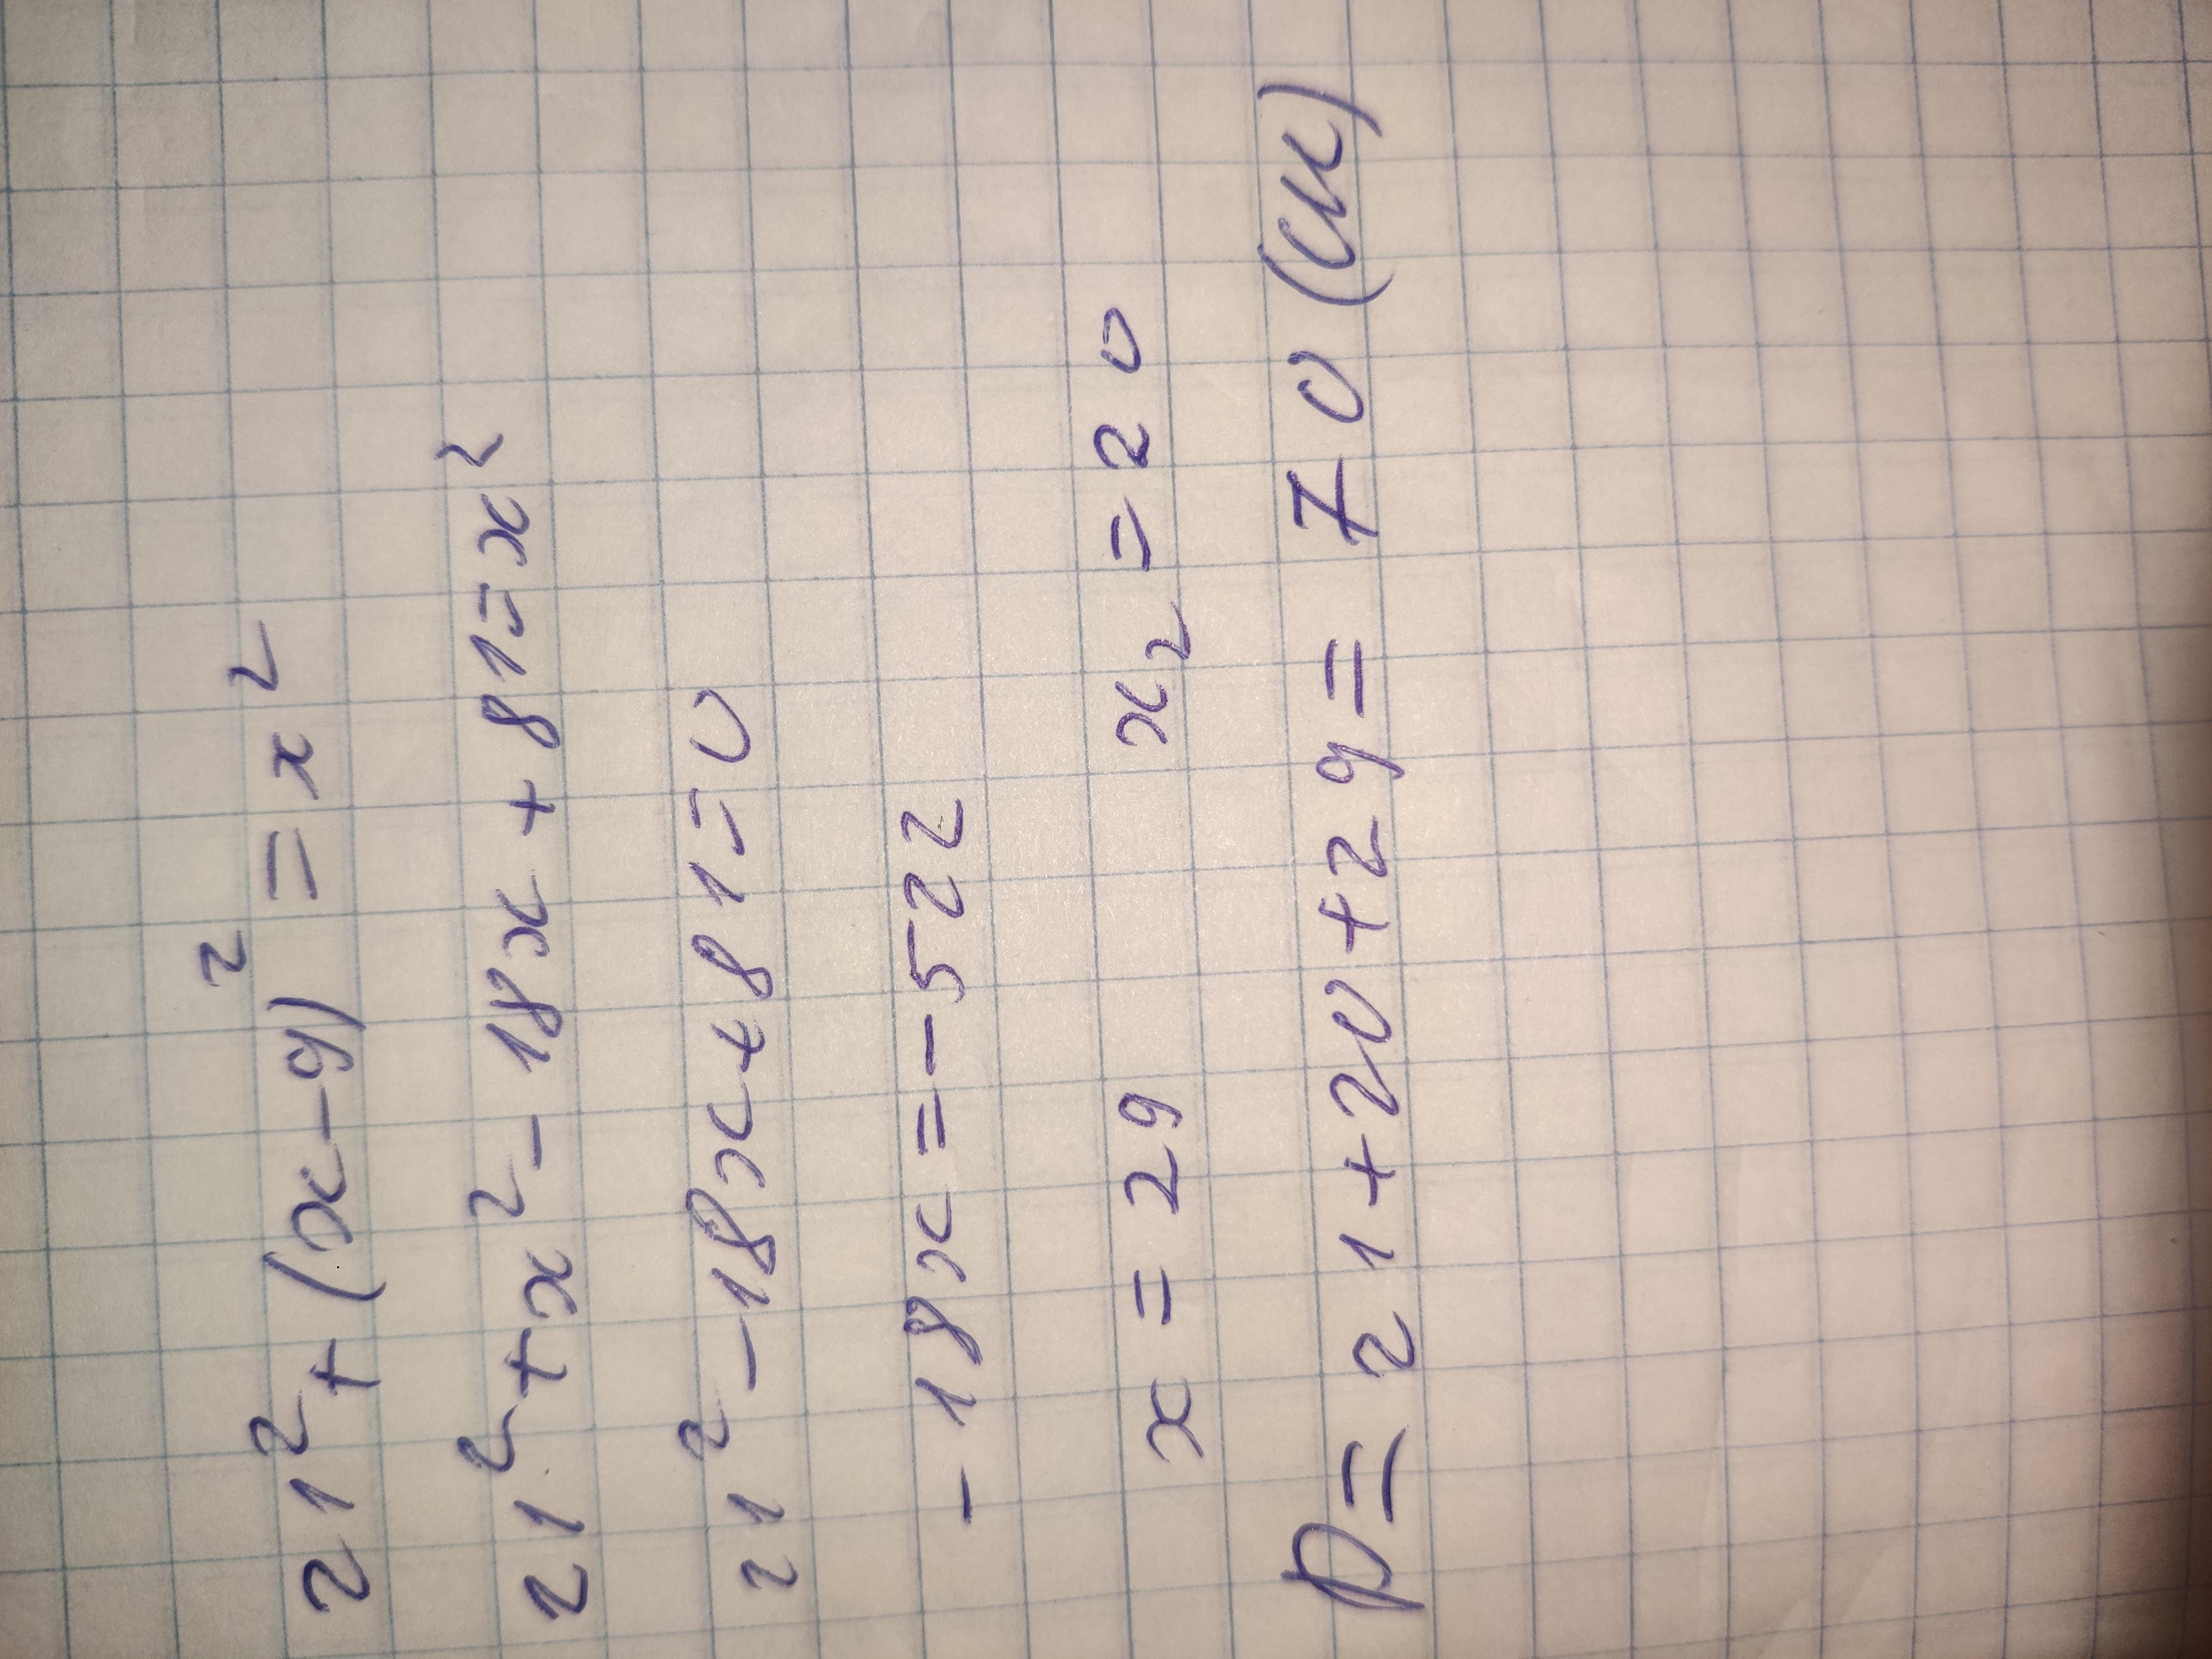 21² + (x - 9)² = x²
21² + x² - 18x + 81 = x²
21² - 18x + 81 = 0
- 18x = - 522
x = 29 x₂ = 20
P = 21 + 20 + 29 = 70 (см)